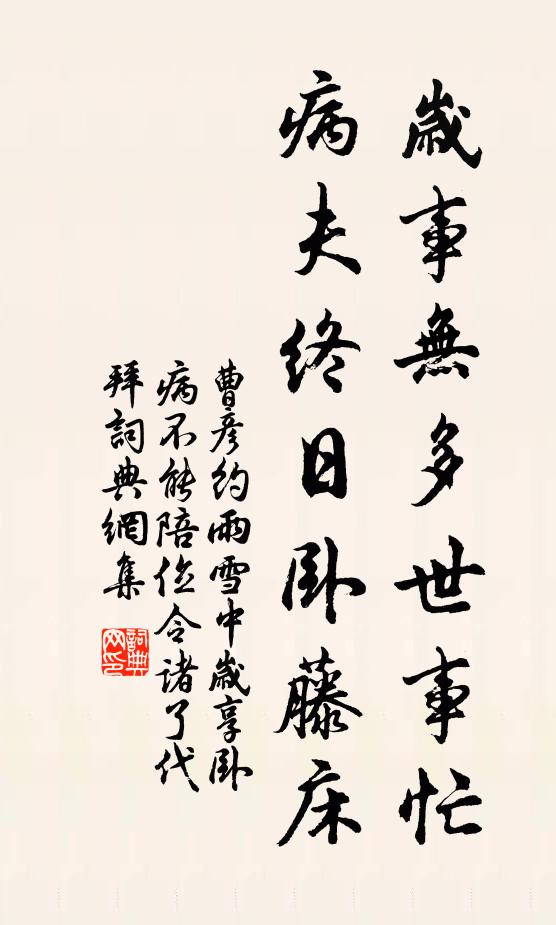 歲事無多世事忙
病夫終日臥藤床
曹彥約雨雪中歲享臥
病不能陪位令諸了代
拜詞典網集
詞典网印